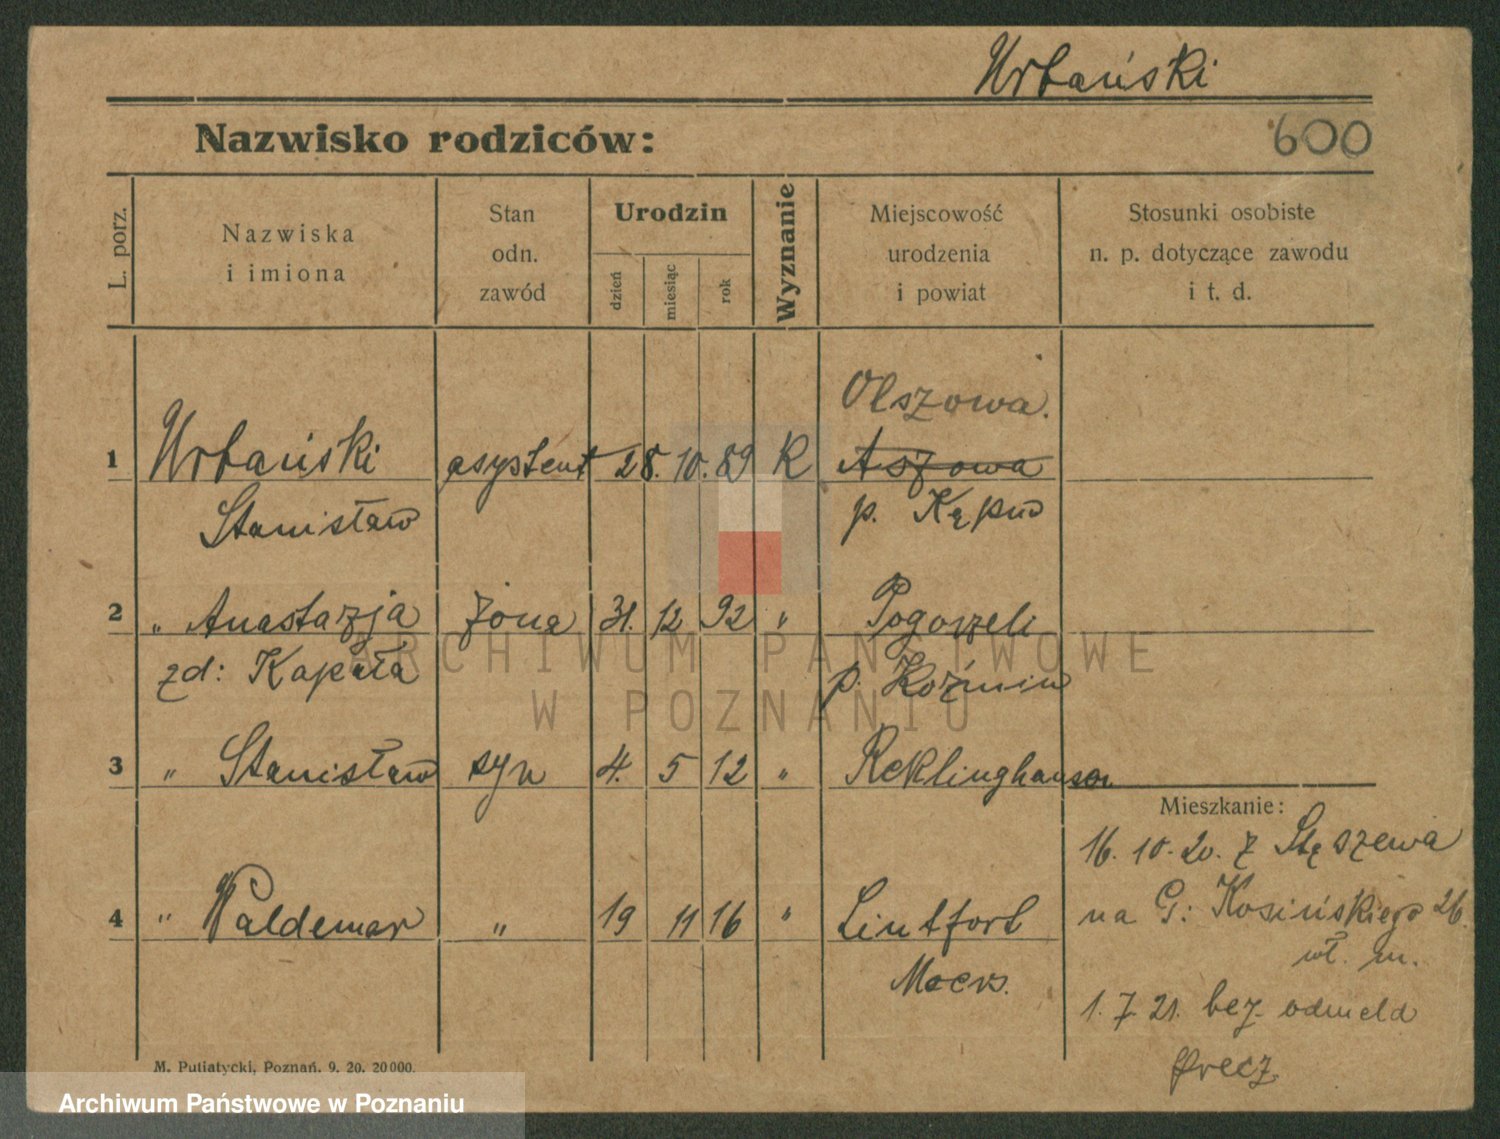 Urbański
Nazwisko rodziców:
600
L. porz.
Nazwiska
i imiona
Stan
odn.
zawód
Urodzin
dzień
miesiąc
rok
Wyznanie
Miejscowość
urodzenia
i powiat
Stosunki osobiste
n. p. dotyczące zawodu
i t. d.
Olszowa.
1 Urbański asystent 28. 10. 89 R Aszowa
Stanisław p. Kępno
2 " Anastazja żona 31. 12 92 " Pogorzeli
zd: Kapała p. Koźmin
3 " Stanisław syn 4. 5 12 " Reklinghausen
Mieszkanie:
16. 10. 20. z Stęszewa
4 " Waldemar " 19 11 16 " Lintfort
na G: Kosińskiego 26.
wł. m.
Moers.
1. 7 21. bez odmeld
precz
M. Putiatycki, Poznań. 9. 20. 20000.
ARCHIWUM PAŃSTWOWE
W POZNANIU
Archiwum Państwowe w Poznaniu